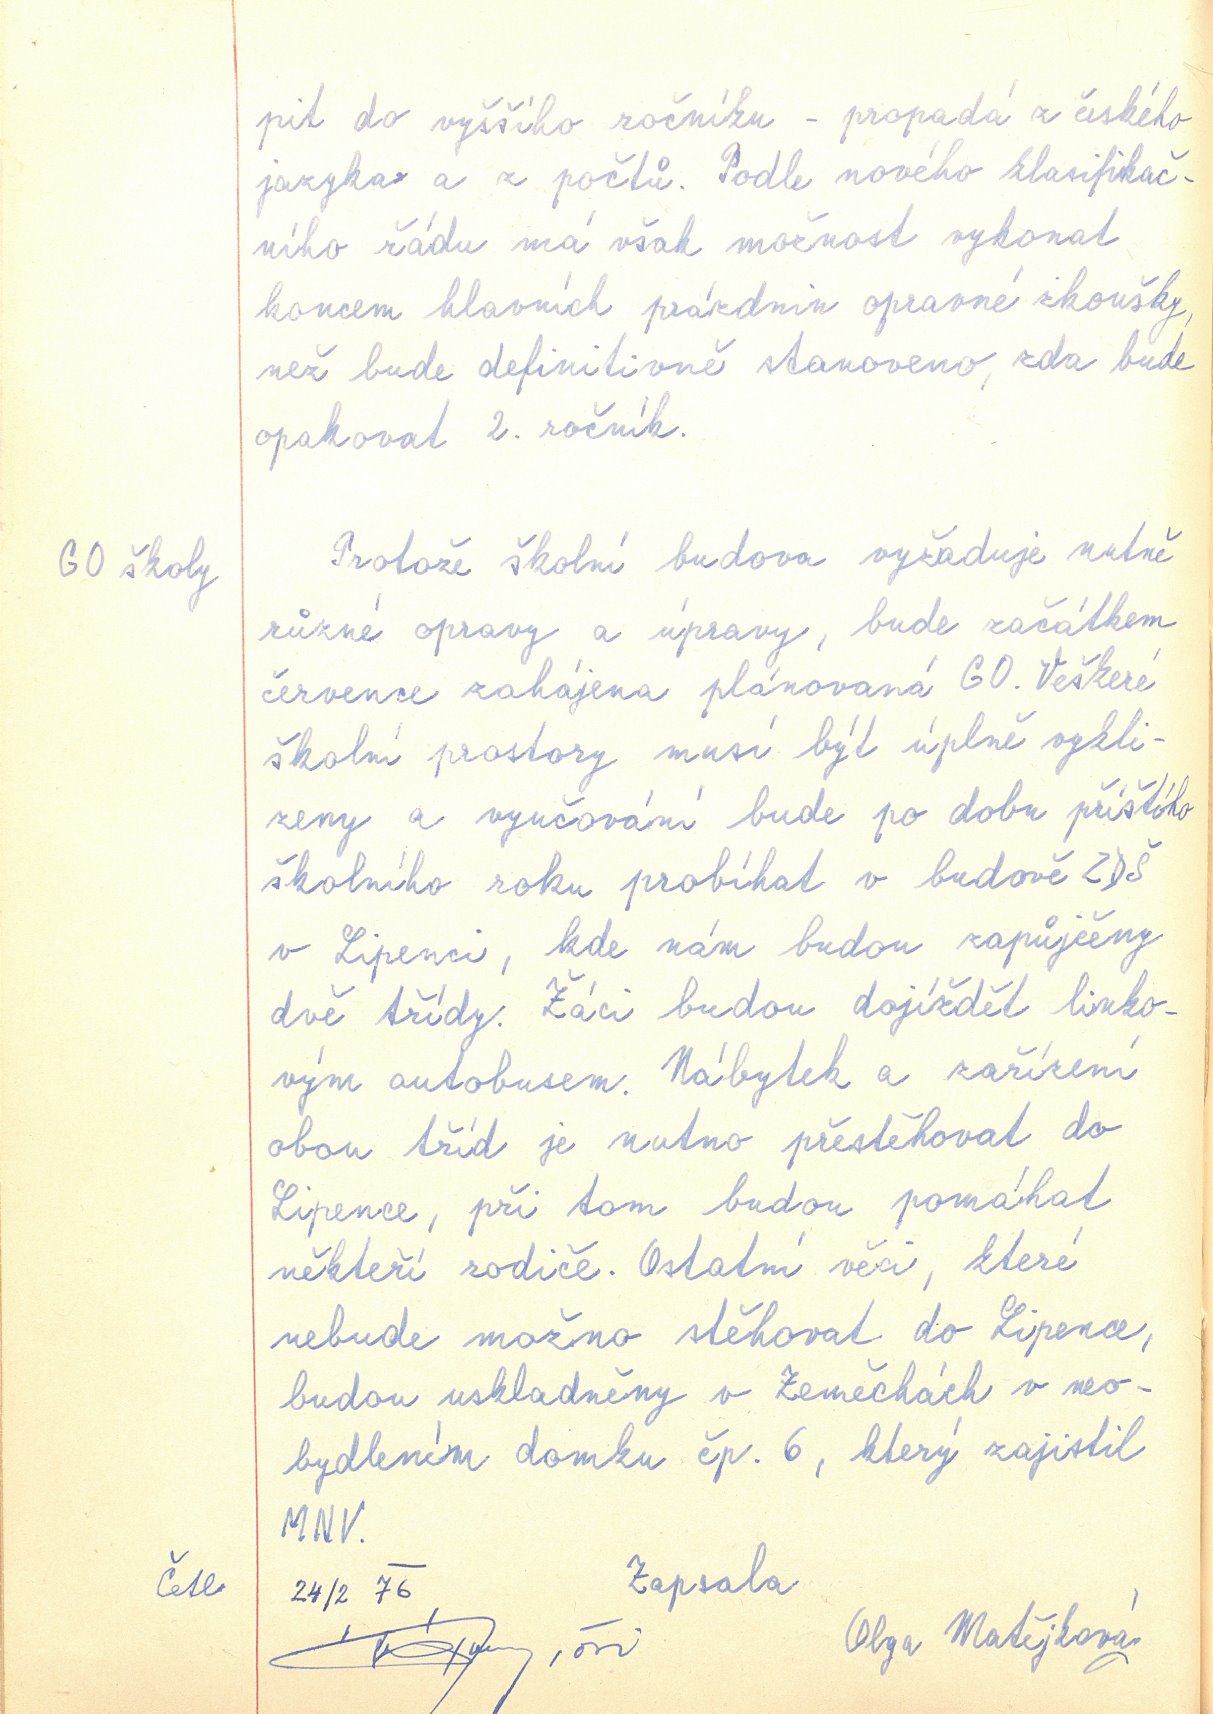 pit do vyššího ročníku - propadá z českého
jazyka a z počtů. Podle nového klasifikač-
ního řádu má však možnost vykonat
koncem hlavních prázdnin opravné zkoušky,
než bude definitivně stanoveno, zda bude
opakovat 2. ročník.
GO školy
Protože školní budova vyžaduje nutně
různé opravy a úpravy, bude začátkem
července zahájena plánovaná GO. Veškeré
školní prostory musí být úplně vykli-
zeny a vyučování bude po dobu příštího
školního roku probíhat v budově ZDŠ
v Lipenci, kde nám budou zapůjčeny
dvě třídy. Žáci budou dojíždět linko-
vým autobusem. Nábytek a zařízení
obou tříd je nutno přestěhovat do
Lipence, při tom budou pomáhat
někteří rodiče. Ostatní věci, které
nebude možno stěhovat do Lipence,
budou uskladněny v Zeměchách v neo-
bydleném domku čp. 6, který zajistil
MNV.
Četl 24/2 76 Zapsala
Olga Matějková